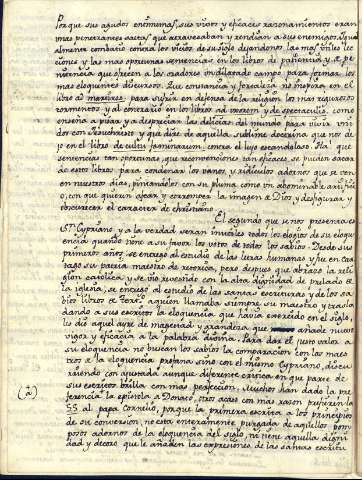 Porque sus agudos enthimemas, sus vivos y eficaces razonamientos eran
mas penetrantes saetas que atravesaban y rendian a sus enemigos. Igual
almente combatio contra los vicios de su siglo dejandonos las mas utiles lec
ciones y las mas oportunas sentencias en los libros de paciencia, y pe
nitencia que ofrecen a los oradores un dilatado campo para formar los
mas eloquentes discursos. Que constancia y fortaleza no inspira en el
libro ad martires para sufrir en defensa de la religion los mas rigurosos
tormentos y al contrario en los libros ad uxorem y de spectaculis como
enseña a huir y a despreciar las delicias del mundo para vivir uni
dos con Jesuchristo y que diré de aquella sublime doctrina que nos de
jo en el libro de cultu faeminarum, contra el lujo escandaloso. Ha! que
sentencias tan oportunas, que reconvenciones tan eficaces, se pueden sacar
de este libro para condenar los vanos, y ridiculos adornos que se ven
en nuestros dias, pintandolos con su pluma como un abominable artifi
cio, con que quieren afear y corromper la imagen de Dios y desfigurar y
obscurecer el caracter de christiano.
El segundo que se nos presenta es
Sn Cypriano y a la verdad seran inutiles todos los elogios de su eloqu
encia quando tiene a su favor los votos de todos los sabios. Desde sus
primeros años se entregó al estudio de las letras humanas y fue en Car
tago su patria maestro de retorica, pero despues que abrazo la reli
gion catolica y se vio revestido con la alta dignidad de prelado de
la iglesia, se entregó al estudio de las santas escrituras y de los sa
bios libros de Tertul. a quien llamaba siempre su maestro y trasla
dando a sus escritos la eloquencia que havia exercido en el siglo,
les dio aquel ayre de magestad y grandeza que añade nuevo
vigor y eficacia a la palabra divina. Para dar el justo valor a
su eloquencia no buscan los sabios la comparacion con los maes
tros de la eloquencia profana sino con el mismo Cypriano, discu
rriendo con ajustada aunque diferente critica en que parte de
sus escritos brilla con mas perfeccion. Muchos han dado la pre
(2)
ferencia la epistola a Donato, otros acaso con mas razon prefieren la
55 al papa Cornelio, porque la primera escrita a los principios
de su conversion, no esta enteramente purgada de aquellos pom
posos adornos de la eloquencia del siglo, ni tiene aquella digni
dad y decoro que le añaden las expresiones de las santas escritu